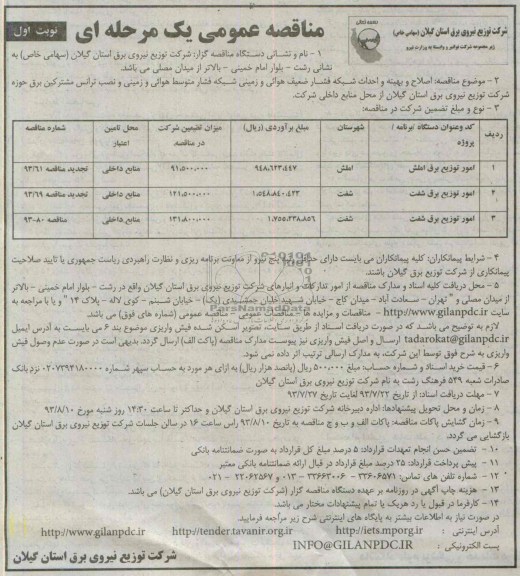 شرکت توزیع نیروی برق استان گیلان (سهامی خاص)
مناقصه عمومی یک مرحله ای
نوبت اول
۱ - نام و نشانی دستگاه مناقصه گزار: شرکت توزیع نیروی برق استان گیلان (سهامی خاص) به
نشانی رشت - بلوار امام خمینی - بالاتر از میدان مصلی می باشد.
۲ - موضوع مناقصه: اصلاح و بهینه و احداث شبکه فشار ضعیف هوائی و زمینی شبکه فشار متوسط هوائی و زمینی و نصب ترانس مشترکین برق حوزه
شرکت توزیع نیروی برق استان گیلان از محل منابع داخلی شرکت.
۳ - نوع و مبلغ تضمین شرکت در مناقصه:
ردیف | کد وعنوان دستگاه /برنامه / پروژه | شهرستان | مبلغ برآوردی (ریال) | میزان تضمین شرکت در مناقصه | محل تامین اعتبار | شماره مناقصه
۱ | امور توزیع برق املش | املش | ۹۴۸،۶۲۳،۴۴۷ | ۹۱،۵۰۰،۰۰۰ | منابع داخلی | تجدید مناقصه ۹۳/۶۱
۲ | امور توزیع برق شفت | شفت | ۱،۵۴۸،۸۴۰،۴۲۳ | ۱۲۱،۵۰۰،۰۰۰ | منابع داخلی | تجدید مناقصه ۹۳/۶۹
۳ | امور توزیع برق شفت | شفت | ۱،۷۵۵،۲۳۸،۸۵۶ | ۱۳۱،۸۰۰،۰۰۰ | منابع داخلی | مناقصه ۸۰-۹۳
۴ - شرایط پیمانکاران: کلیه پیمانکاران می بایست دارای حداقل رتبه پنج نیرو از معاونت برنامه ریزی و نظارت راهبردی ریاست جمهوری یا تایید صلاحیت
پیمانکاری از شرکت توزیع برق گیلان باشند.
۵ - محل دریافت کلیه اسناد و مدارک مناقصه از امور تدارکات و انبارهای شرکت توزیع نیروی برق استان گیلان واقع در رشت - بلوار امام خمینی - بالاتر
از میدان مصلی و " تهران - سعادت آباد - میدان کاج - خیابان شهید خلبان جمشیدی (یک) - خیابان شبنم - کوی لاله - پلاک ۱۴ " و یا با مراجعه به
سایت http://www.gilanpdc.ir - مناقصات و مزایده ها - مناقصات عمومی - مناقصه عمومی (شماره های فوق) می باشد.
لازم به توضیح می باشد که در صورت دریافت اسناد از طریق سایت، تصویر اسکن شده فیش واریزی موضوع بند ۶ می بایست به آدرس ایمیل
tadarokat@gilanpdc.ir ارسال و اصل فیش واریزی نیز پیوست مدارک مناقصه (پاکت الف) ارسال گردد. بدیهی است در صورت عدم وصول فیش
واریزی به شرح فوق توسط این شرکت، به مدارک ارسالی ترتیب اثر داده نمی شود.
۶ - قیمت خرید اسناد و شماره حساب: مبلغ ۵۰۰،۰۰۰ ریال (پانصد هزار ریال) به ازای هر مورد به حساب سپهر شماره ۰۲۰۷۳۹۴۱۸۰۰۰۰ نزد بانک
صادرات شعبه ۵۴۹ فرهنگ رشت به نام شرکت توزیع نیروی برق استان گیلان
۷ - مهلت دریافت اسناد: از تاریخ ۹۳/۷/۲۲ لغایت تاریخ ۹۳/۷/۲۷
۸ - زمان و محل تحویل پیشنهادها: اداره دبیرخانه شرکت توزیع نیروی برق استان گیلان و حداکثر تا ساعت ۱۴:۳۰ روز شنبه مورخ ۹۳/۸/۱۰
۹ - زمان گشایش پاکات مناقصه: پاکات الف و ب و ج مناقصه به تاریخ ۹۳/۸/۱۰ راس ساعت ۱۶ در سالن جلسات شرکت توزیع نیروی برق استان گیلان
بازگشایی می گردد.
۱۰ - تضمین حسن انجام تعهدات قرارداد: ۵ درصد مبلغ کل قرارداد به صورت ضمانتنامه بانکی
۱۱ - پیش پرداخت قرارداد: ۲۵ درصد مبلغ قرارداد در قبال ارائه ضمانتنامه بانکی معتبر
۱۲ - شماره تلفن های تماس: ۳۳۶۰۶۵۷۱ - ۳۳۶۶۳۰۰۶ - ۰۱۳ و ۲۲۰۶۲۵۶۷ - ۰۲۱
۱۳ - هزینه چاپ آگهی در روزنامه بر عهده دستگاه مناقصه گزار (شرکت توزیع نیروی برق استان گیلان) می باشد.
۱۴ - کارفرما در قبول یا رد هریک یا تمام پیشنهادات مختار می باشد.
در صورت نیاز به اطلاعات بیشتر به پایگاه های اینترنتی شرح زیر مراجعه فرمایید.
آدرس اینترنتی : http://iets.mporg.ir http://tender.tavanir.org.ir http://www.gilanpdc.ir
پست الکترونیکی : INFO@GILANPDC.IR
شرکت توزیع نیروی برق استان گیلان